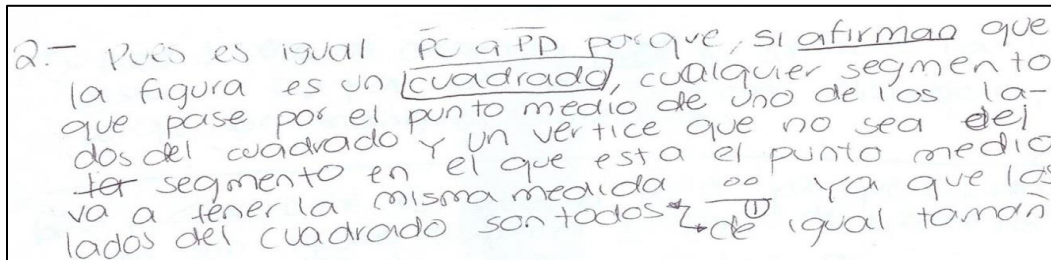 2.- Pues es igual PC a PD porque, si afirman que
la figura es un cuadrado, cualquier segmento
que pase por el punto medio de uno de los la-
dos del cuadrado y un vertice que no sea del
segmento en el que esta el punto medio
va a tener la misma medida ya que los
lados del cuadrado son todos de igual tamañ